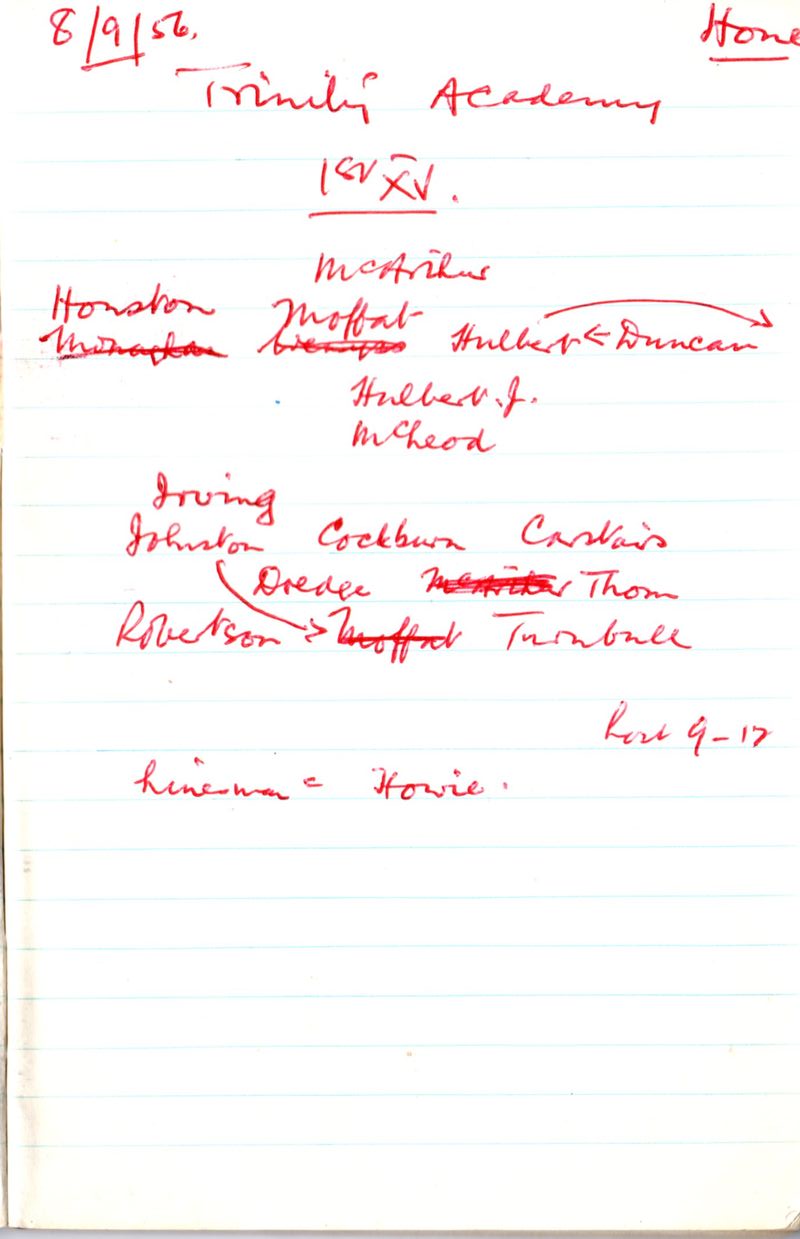 8/9/56. Home
Trinity Academy
1st XV.
McArthur
Houston Moffat
Monaghan Hulbert Duncan
Hulbert.J.
McLeod
Irving
Johnston Cockburn Carstairs
Dredge McArthur Thom
Robertson Moffat Turnbull
Lost 9-17
Linesman = Howie.